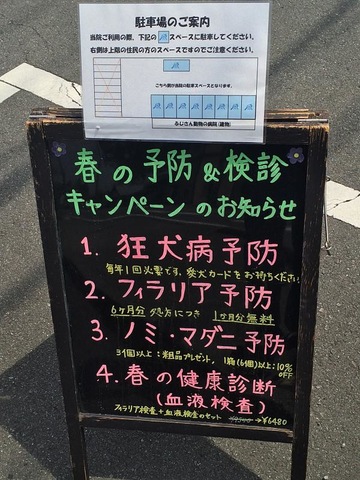 駐車場のご案内
当院ご利用の際、下記の スペースに駐車してください。
右側は上階の住民の方のスペースですのでご注意ください。
こちら側が当院の駐車スペースとなります。
ふじさん動物の病院(建物)
春の予防&検診
キャンペーンのお知らせ
1. 狂犬病予防
毎年1回必要です。愛犬カードをお持ちください
2. フィラリア予防
6ヶ月分処方につき 1ヶ月分無料
3. ノミ・マダニ予防
3個以上:粗品プレゼント、1箱(6個)以上:10%OFF
4. 春の健康診断
(血液検査)
フィラリア検査+血液検査のセット →¥6480